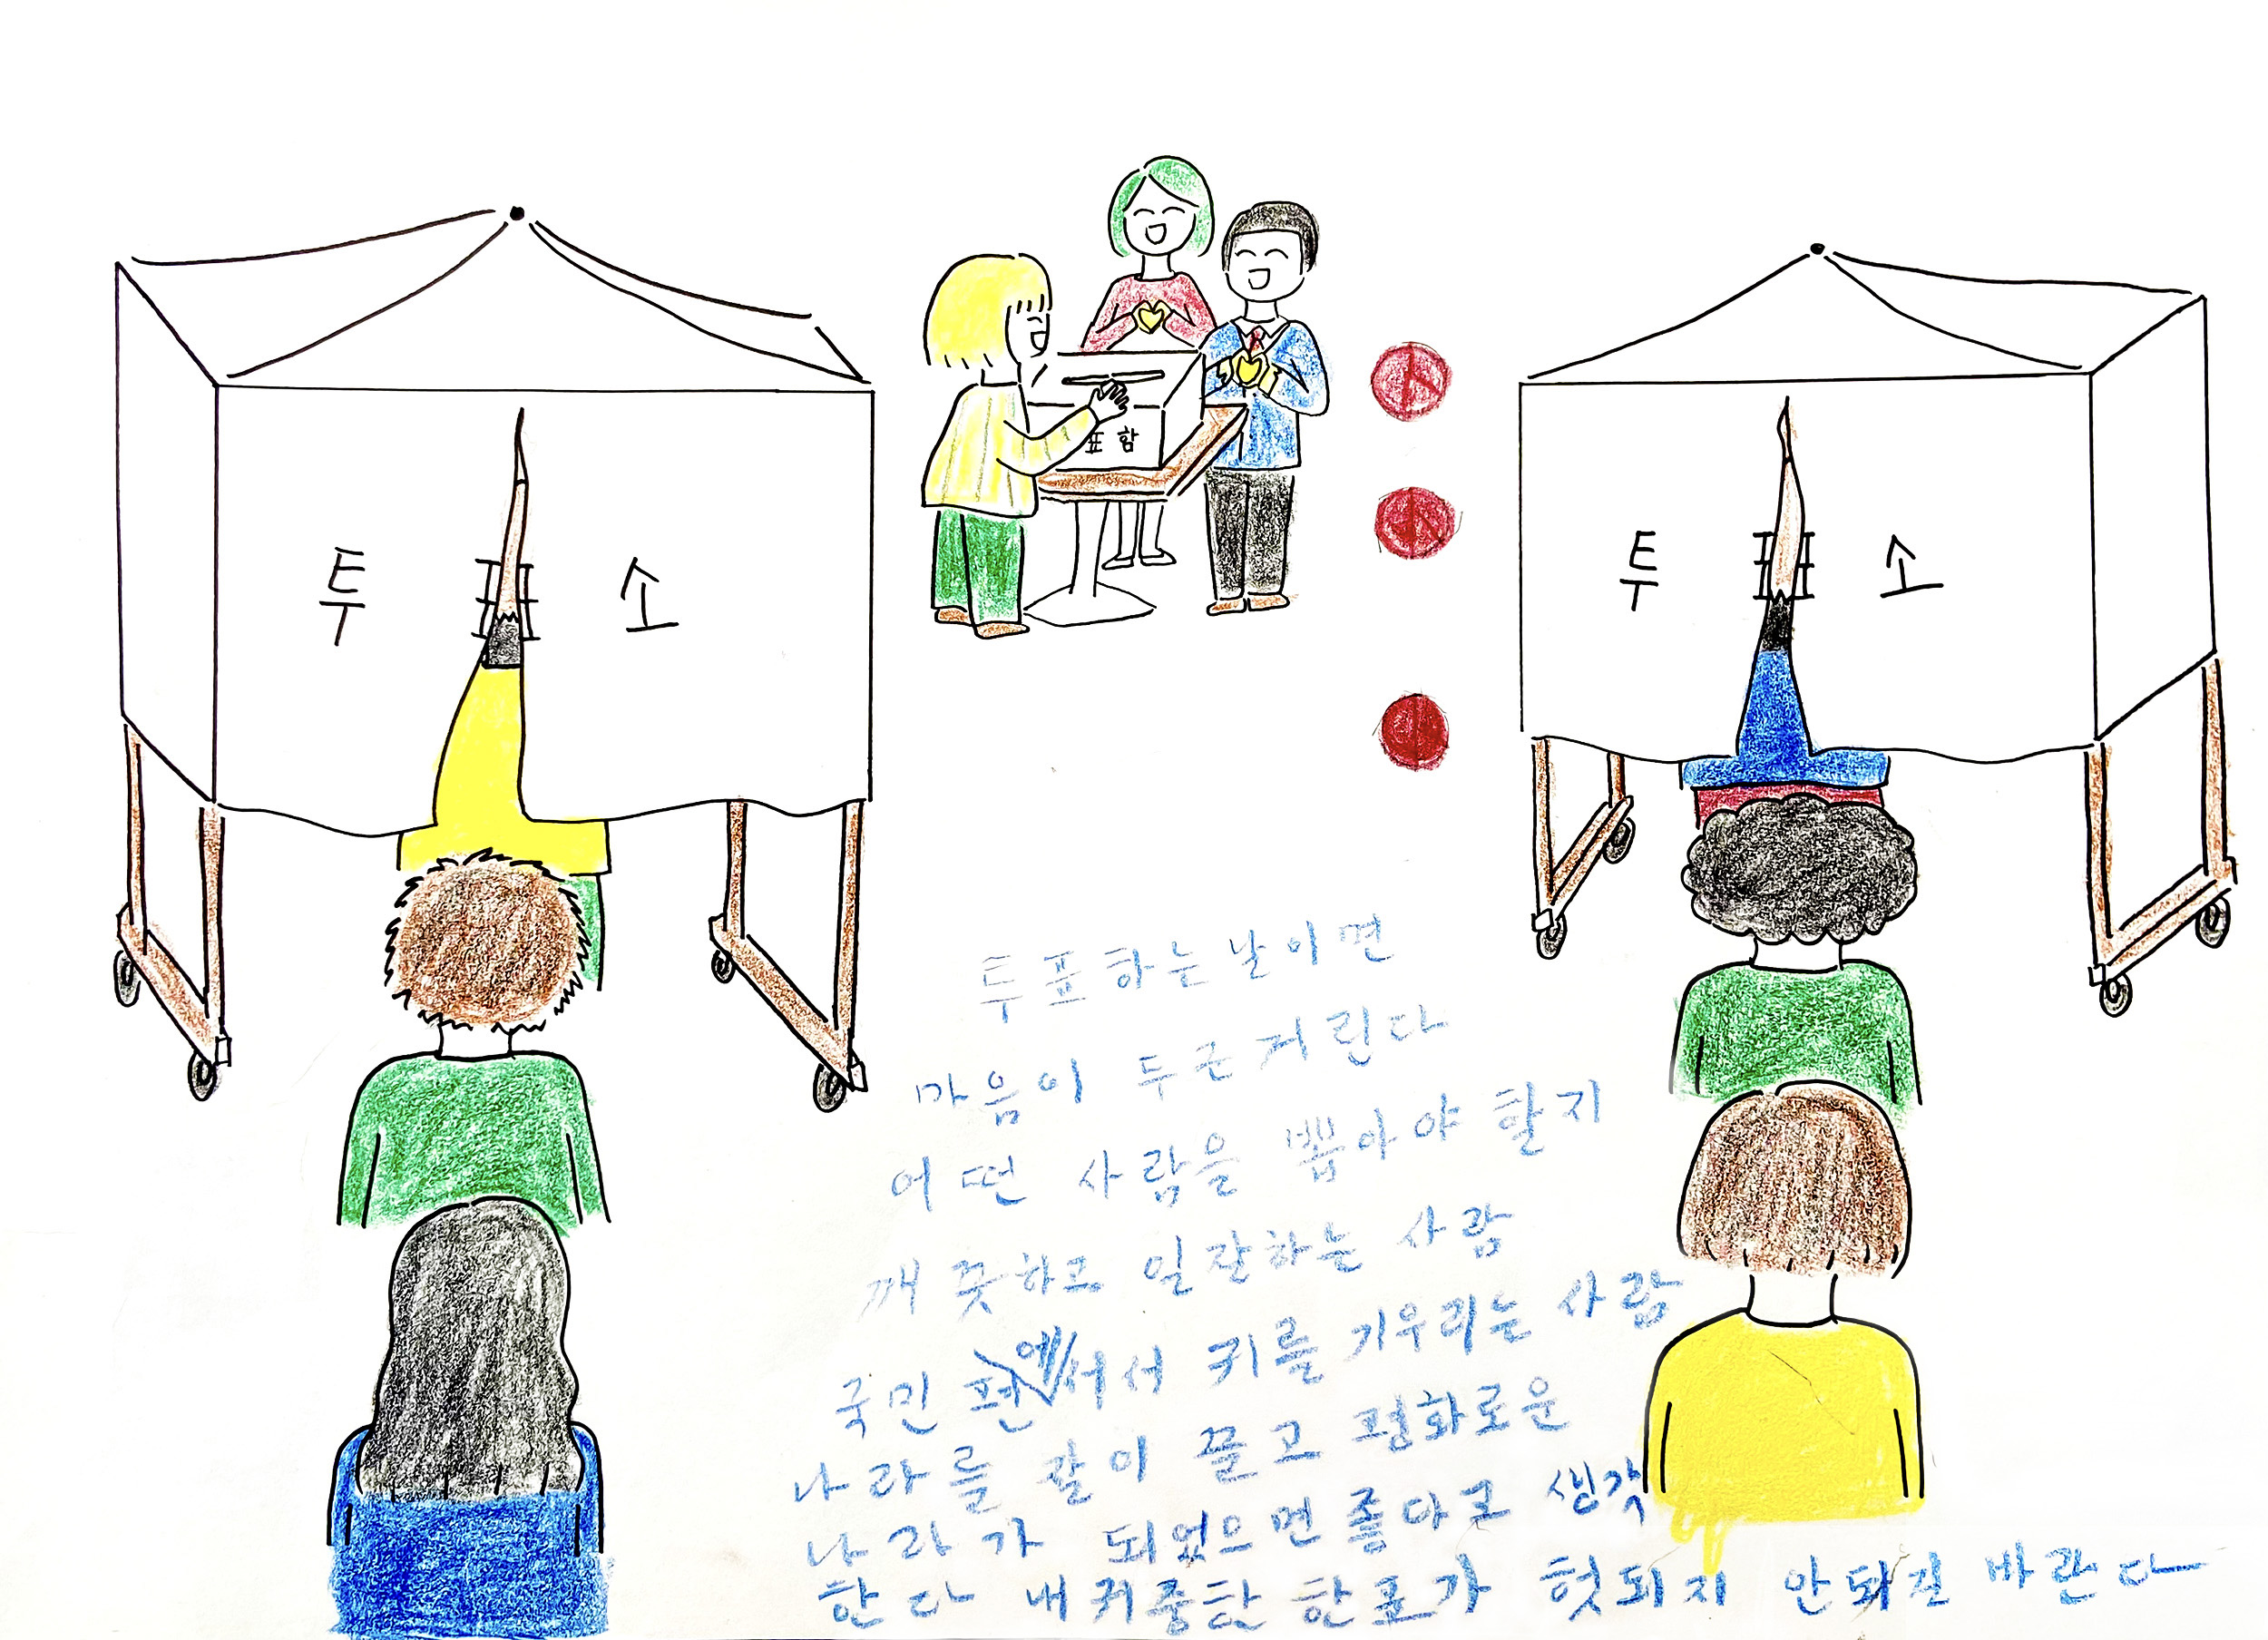 투 표 소
표 함
투 표 소
투표하는 날이면
마음이 두근거린다
어떤 사람을 뽑아야 할지
깨끗하고 일잘하는 사람
국민 편에서서 귀를 기우리는 사람
나라를 잘이 끌고 평화로운
나라가 되었으면 좋다고 생각
한다 내 귀중한 한표가 헛되지 안되길 바란다